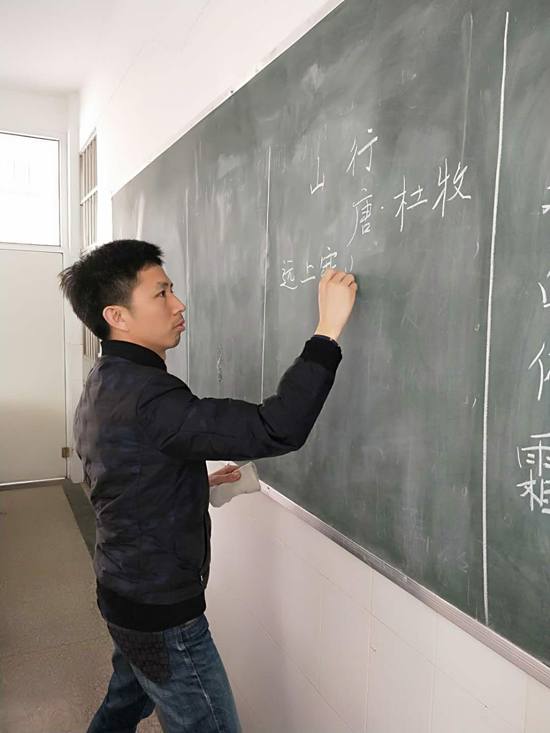 山行
唐·杜牧
远上寒
霜